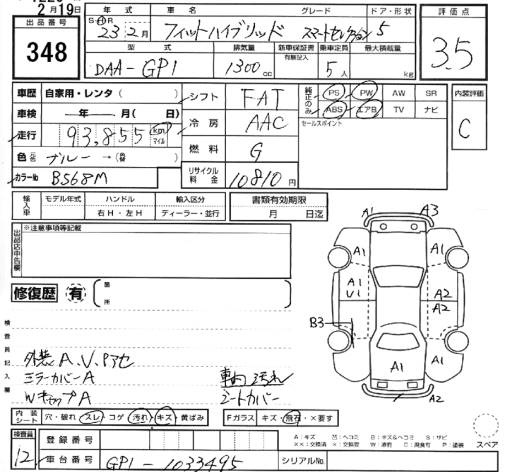 2月19日
出品番号
348
年式
S・H・R
23年2月
車名
フィットハイブリッド
グレード
スマートセレクション
ドア・形状
5
評価点
3.5
型式
DAA-GP1
排気量
1300cc
新車保証書
有無記入
乗車定員
5人
最大積載量
kg
車歴
自家用・レンタ（　）
車検
年　月（　日）
走行
93,855
Km
マイル
色
元色
ブルー→
カラーNo
B568M
シフト
FAT
冷房
AAC
燃料
G
リサイクル料金
10810円
純正のみ
PS PW AW SR
ABS エアB TV ナビ
セールスポイント
内装評価
C
輸入車
モデル年式
ハンドル
右H・左H
輸入区分
ディーラー・並行
書類有効期限
月　日迄
出品店申告欄
※注意事項等記載
修復歴
有
箇所
検査員記入欄
外装A.V.Pアセ
ミラーカバーA
WキャップA
車内汚れ
シートカバー
A1
A3
A1
V1
A1
A1
A2
A2
B3
A1
A1
A2
内装シート
穴・破れ・スレ・コゲ・汚れ・キズ・黄ばみ
Fガラス
キズ・飛石・×要す
スペア
検査員
12
登録番号
車台番号
GP1-1033495
シリアルNo.